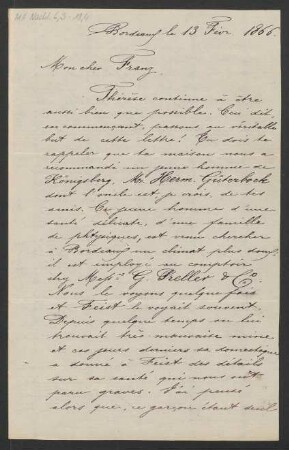 Bordeaux le 13 Févr 1866.
Mon cher Franz,
Thérèse continue à être
aussi bien que possible. Ceci dit,
en commençant, passons au véritable
but de cette lettre! Tu dois te
rappeler que ta maison nous a
recommandé un jeune homme de
Königsberg, Mr Herm Güterbock
dont l'oncle est je crois, de tes
amis. Ce jeune homme d'une
santé délicate, d'une famille
de phtysiques, est venu chercher
à Bordeaux un climat plus doux,
il est employé au comptoir
chez Messrs G. Preller & Co.
Nous le voyons quelque fois
et Feist le voyait souvent.
Depuis quelque temps on lui
trouvait très mauvaise mine
et ces jours derniers sa domestique
a donné à Feist des détails
sur sa santé qui nous ont
paru graves. J'ai pensé
alors que, ce garçon étant seul